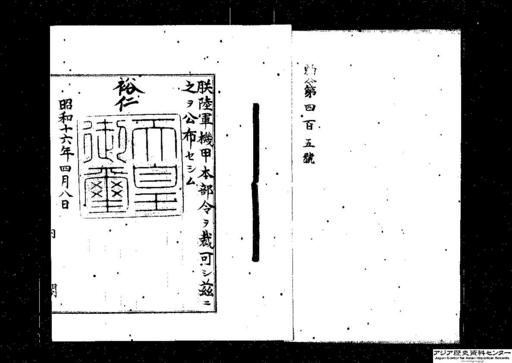 勅令第四百五號
朕陸軍機甲本部令ヲ裁可シ玆ニ
之ヲ公布セシム
裕仁
天皇御璽
昭和十六年四月八日
内閣
アジア歴史資料センター
Japan Center for Asian Historical Records